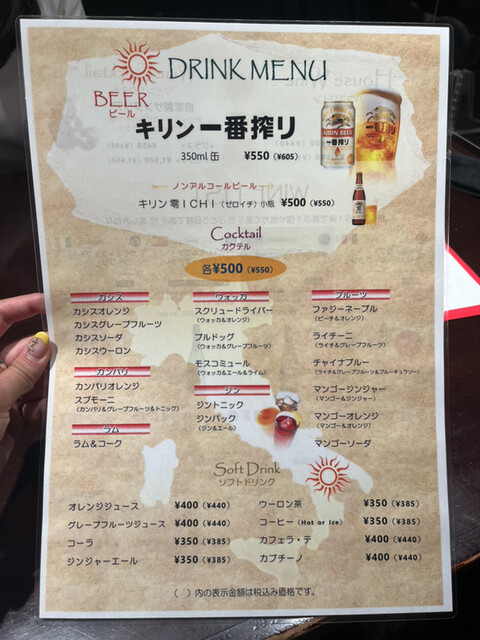 DRINK MENU
BEER
ビール
キリン一番搾り
350ml 缶 ¥550 (¥605)
KIRIN BEER
一番搾り
ノンアルコールビール
キリン 零ICHI (ゼロイチ) 小瓶 ¥500 (¥550)
Cocktail
カクテル
各¥500 (¥550)
カシス
カシスオレンジ
カシスグレープフルーツ
カシスソーダ
カシスウーロン
カンパリ
カンパリオレンジ
スプモーニ
(カンパリ&グレープフルーツ&トニック)
ラム
ラム&コーク
ウォッカ
スクリュードライバー
(ウォッカ&オレンジ)
ブルドッグ
(ウォッカ&グレープフルーツ)
モスコミュール
(ウォッカ&エール&ライム)
ジン
ジントニック
ジンバック
(ジン&エール)
フルーツ
ファジーネーブル
(ピーチ&オレンジ)
ライチーニ
(ライチ&グレープフルーツ)
チャイナブルー
(ライチ&グレープフルーツ&ブルーキュラソー)
マンゴージンジャー
(マンゴー&ジンジャー)
マンゴーオレンジ
(マンゴー&オレンジ)
マンゴーソーダ
Soft Drink
ソフトドリンク
オレンジジュース ¥400 (¥440)
グレープフルーツジュース ¥400 (¥440)
コーラ ¥350 (¥385)
ジンジャーエール ¥350 (¥385)
ウーロン茶 ¥350 (¥385)
コーヒー (Hot or Ice) ¥350 (¥385)
カフェラ・テ ¥400 (¥440)
カプチーノ ¥400 (¥440)
( ) 内の表示金額は税込み価格です。